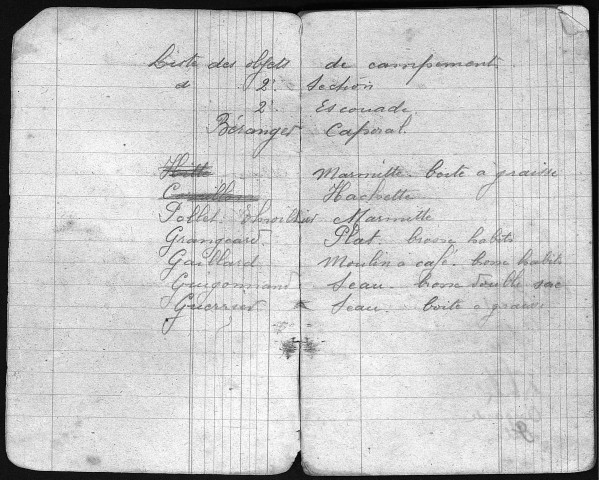 Liste des objets de campement
2e Section
2e Escouade
Béranger Caporal
Hitte Marmitte - boite a graisse
Hachette
Pollet Marmitte
Grangeard Plat - brosse habits
Gaillard Moulin a café - brosse habits
Guigonnand Seau - brosse double sac
Guerrier Seau - boite a graisse